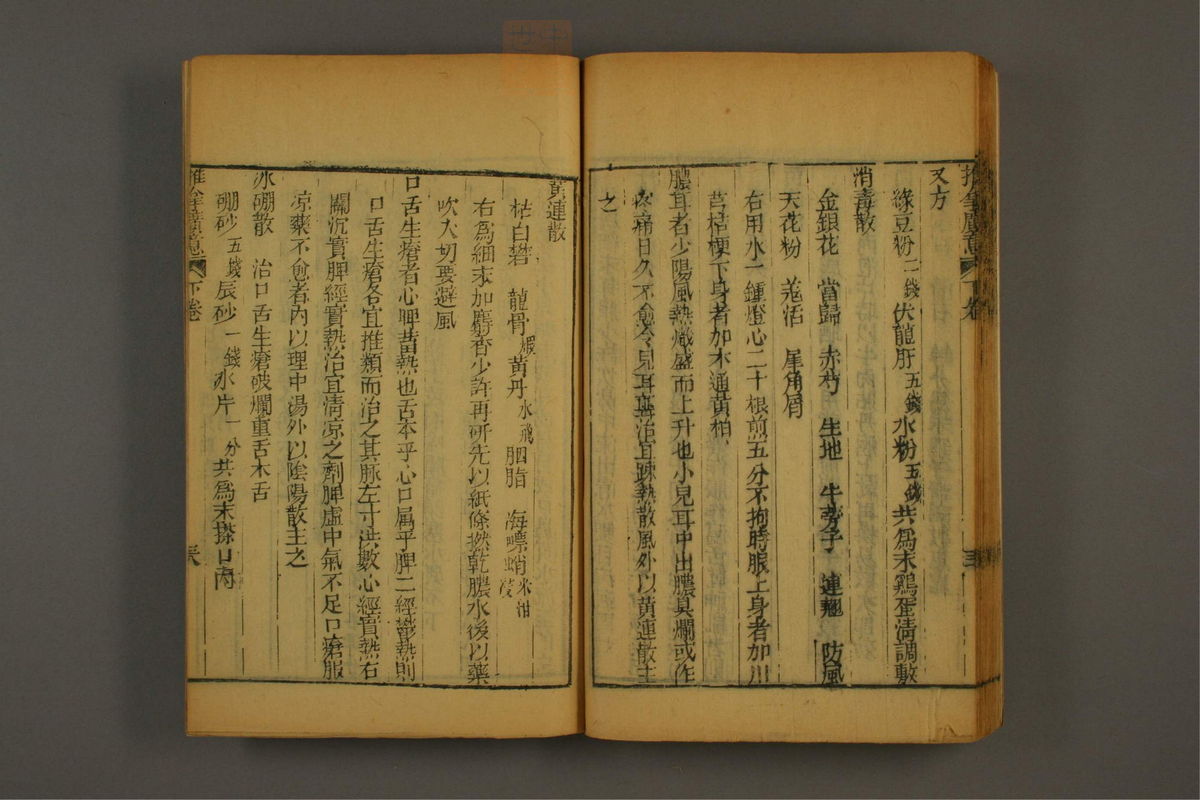 推拿廣意 下卷
又方
綠豆粉二錢伏龍肝五錢水粉五錢共爲末鷄蛋淸調敷
消毒散
金銀花 當歸 赤芍 生地 牛蒡子 連翹 防風
天花粉 羗活 犀角屑
右用水一鍾燈心二十根煎五分不拘時服上身者加川
芎桔梗下身者加木通黃柏
膿耳者少陽風熱熾盛而上升也小兒耳中出膿臭爛或作
疼痛日久不愈令兒耳聾治宜踈熱散風外以黃連散主
之
黃連散
枯白礬 龍骨煅黃丹水飛胭脂 海螵蛸米泔煑
右爲細末加麝香少許再硏先以紙條撚乾膿水後以藥
吹入切要避風
口舌生瘡者心脾蓄熱也舌本乎心口属乎脾二經蘊熱則
口舌生瘡各宜推類而治之其脉左寸洪數心經實熱右
關沉實脾經實熱治宜淸凉之劑脾虛中氣不足口瘡服
凉藥不愈者內以理中湯外以陰陽散主之
冰硼散 治口舌生瘡破爛重舌木舌
硼砂五錢辰砂一錢氷片一分共爲末搽口內
推拿廣意 下卷